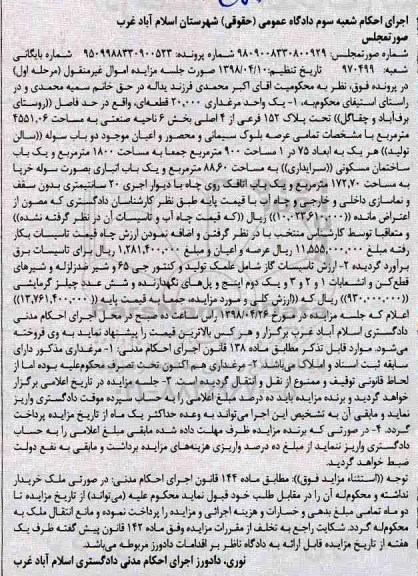 اجرای احکام شعبه سوم دادگاه عمومی (حقوقی) شهرستان اسلام آباد غرب
صورتمجلس
شماره صورتمجلس: ۹۸۰۹۰۰۸۳۳۰۸۰۰۹۲۹ شماره پرونده: ۹۵۰۹۹۸۸۳۳۰۹۰۰۵۲۳ شماره بایگانی
شعبه: ۹۷۰۴۹۹ تاریخ تنظیم: ۱۳۹۸/۰۴/۱۰ صورت جلسه مزایده اموال غیرمنقول (مرحله اول)
در پرونده فوق، نظر به محکومیت آقای اکبر محمدی فرزند یداله در حق خانم سمیه محمدی و در
راستای استیفای محکوم‌به، ۱- یک واحد مرغداری ۲۰,۰۰۰ قطعه‌ای، واقع در حد فاصل ((روستای
برف‌آباد و چقاگل)) تحت پلاک ۱۵۲ فرعی از ۴ اصلی بخش ۶ ناحیه صنعتی به مساحت ۴۵۵۱,۰۶
مترمربع با مشخصات تمامی عرصه بلوک سیمانی و محصور و اعیان موجود دو باب سوله ((سالن
تولید)) هر یک به ابعاد ۷۵ در ۱۲ مساحت ۹۰۰ مترمربع جمعا به مساحت ۱۸۰۰ مترمربع و یک باب
ساختمان مسکونی ((سرایداری)) به مساحت ۸۸,۶۰ مترمربع و یک باب انباری بصورت سوله خرپا
به مساحت ۱۷۲,۷۰ مترمربع و یک باب اتاقک روی چاه با دیوار اجری ۲۰ سانتیمتری بدون سقف
و نماسازی داخلی و خارجی و چاه آب با قیمت پایه طبق نظر کارشناسان دادگستری که مصون از
اعتراض مانده ((۱۰,۰۲۳,۶۱۰,۰۰۰)) ریال ((که قیمت چاه آب و تاسیسات آن در نظر گرفته نشده))
و متعاقبا توسط کارشناس منتخب با در نظر گرفتن و اضافه نمودن ارزش چاه قیمت تاسیسات بکار
رفته مبلغ ۱۱,۵۵۵,۰۰۰,۰۰۰ ریال عرصه و اعیان و مبلغ ۱,۲۸۱,۴۰۰,۰۰۰ ریال برای تاسیسات برق
برآورد گردیده ۲- ارزش تاسیسات گاز شامل علمک تولید و کنتور جی ۶۵ و شیر ضدزلزله و شیرهای
قطع‌کن و انشعابات ۱ و ۲ و ۳ و یک دوم اینچ و پل‌های نگهدارنده و شش عدد چیلر گرمایشی
((۹۳۰,۰۰۰,۰۰۰)) ریال که ((ارزش کلی و مورد مزایده، جمعا به قیمت پایه (( ۱۳,۷۶۱,۴۰۰,۰۰۰))
اعلام که جلسه مزایده در مورخ ۱۳۹۸/۰۴/۲۶ راس ساعت ده صبح در محل اجرای احکام مدنی
دادگستری اسلام آباد غرب برگزار و هر کس بالاترین قیمت را پیشنهاد نماید به وی فروخته
می‌شود. موارد قابل تذکر مطابق ماده ۱۳۸ قانون اجرای احکام مدنی: ۱- مرغداری مذکور دارای
سابقه ثبت اسناد و املاک می‌باشد ۲- مرغداری هم اکنون تحت تصرف محکوم‌علیه بوده اما از
لحاظ قانونی توقیف و ممنوع از نقل و انتقال گردیده است ۳- جلسه مزایده در تاریخ اعلامی برگزار
خواهد گردید و برنده مزایده باید ده درصد مبلغ اعلامی را به حساب سپرده موقت دادگستری واریز
نماید و مابقی آن به تشخیص این اجرا می‌تواند به وعده حداکثر یک ماه از تاریخ مزایده پرداخت
گردد. ۴- در صورتی که برنده مزایده ظرف مهلت داده شده مابقی مبلغ اعلامی را به حساب
دادگستری واریز ننماید از مبلغ ده درصد واریزی هزینه‌های مزایده برداشت و مابقی به نفع دولت
ضبط خواهد گردید.
توجه ((استثناء مزاید فوق)): مطابق ماده ۱۴۴ قانون اجرای احکام مدنی: در صورتی ملک خریدار
نداشته و محکوم‌له آن را در مقابل طلب خود قبول نماید محکوم علیه (می‌تواند) از تاریخ مزایده تا
دو ماه تمامی مبلغ بدهی و خسارات و هزینه اجرائی و مزایده را پرداخت نموده و مانع انتقال ملک به
محکوم‌له گردد. شکایت راجع به تخلف از مقررات مزایده وفق ماده ۱۴۲ قانون پیش گفته ظرف یک
هفته از تاریخ مزایده قابل ارائه به دادگاه ناظر بر اقدامات دادورز مربوطه می‌باشد.
نوری، دادورز اجرای احکام مدنی دادگستری اسلام آباد غرب